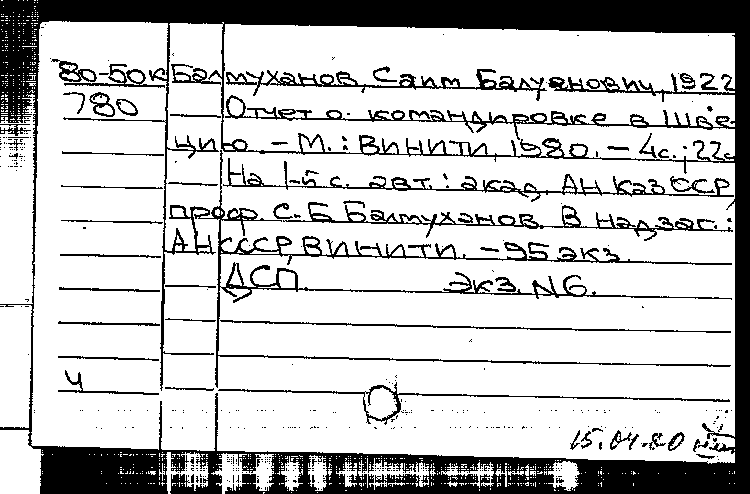 80-50к Балмуханов, Саим Балуанович, 1922
780 Отчет о командировке в Шве-
цию. - М.: ВИНИТИ, 1980. - 4с.; 22с
На 1-5 с. авт.: акад. АН КазССР,
проф. С.Б Балмуханов. В надзаг.:
АН СССР, ВИНИТИ. - 95 экз.
ДСП. Экз. N6.
ч
15.04.80